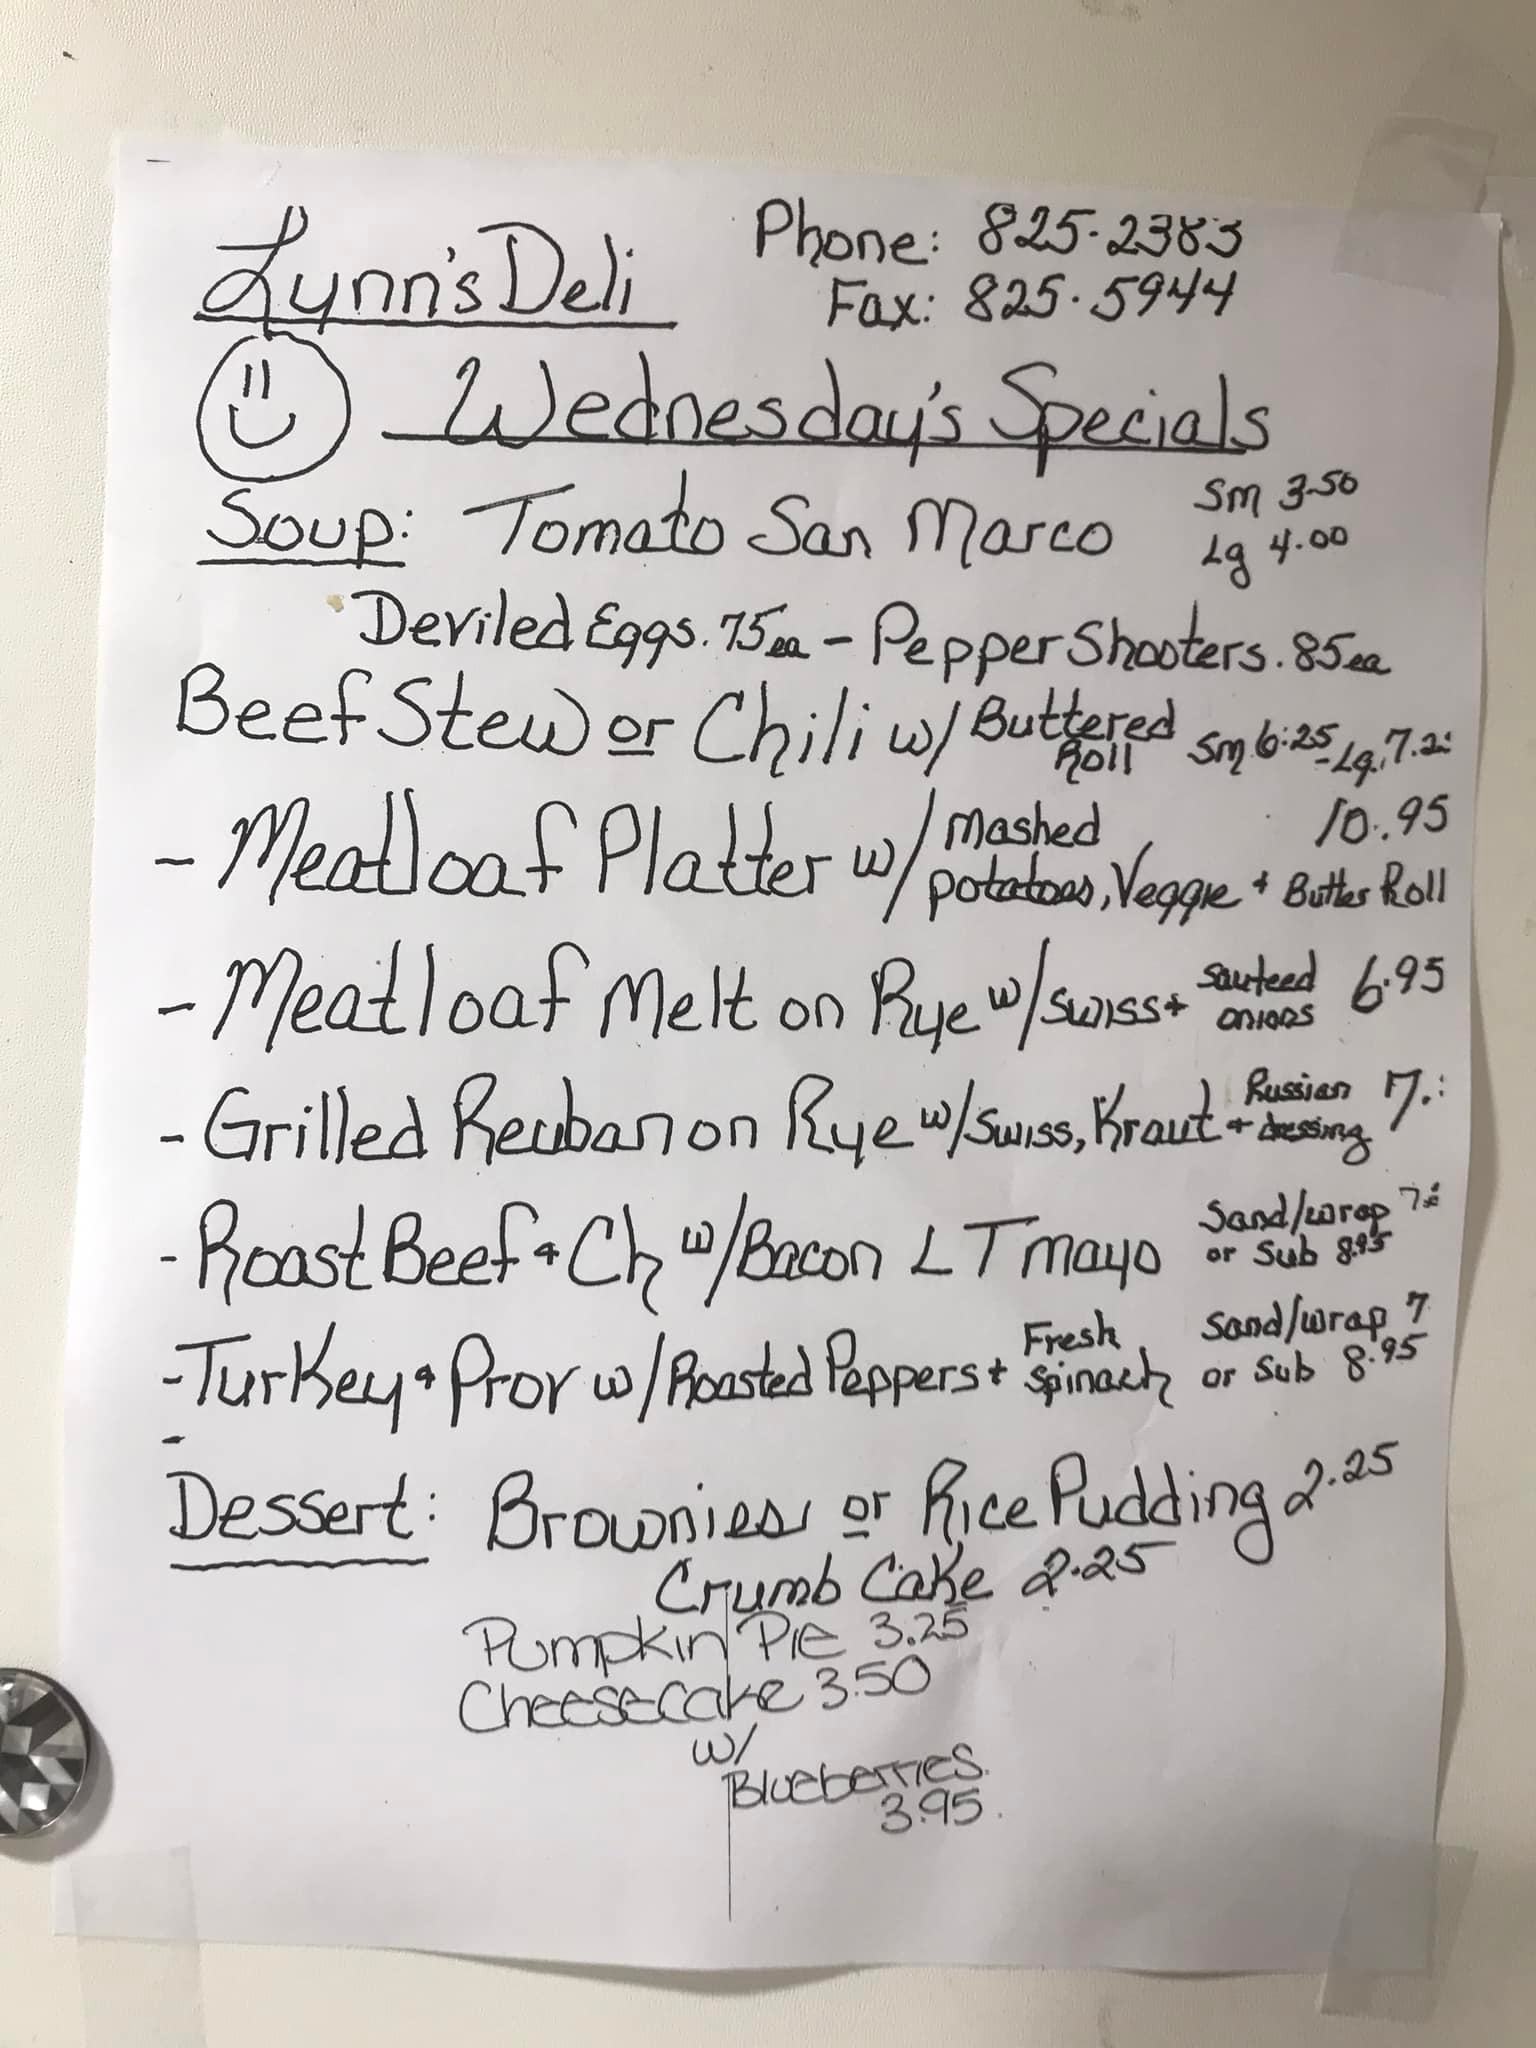 Lynn's Deli
Phone: 825-2383
Fax: 825-5944
Wednesday's Specials
Soup: Tomato San Marco Sm 3.50
Lg 4.00
Deviled Eggs .75 ea - Pepper Shooters .85 ea
Beef Stew or Chili w/ Buttered Roll Sm 6.25 - Lg. 7.2
- Meatloaf Platter w/ Mashed potatoes, Veggie + Butter Roll 10.95
- Meatloaf Melt on Rye w/ swiss + sauteed onions 6.95
- Grilled Reuban on Rye w/ Swiss, Kraut + Russian dressing 7.
- Roast Beef + Ch w/ Bacon L T mayo Sand/wrap 7
or Sub 8.95
- Turkey + Prov w/ Roasted Peppers + Fresh spinach Sand/wrap 7
or Sub 8.95
-
Dessert: Brownies or Rice Pudding 2.25
Crumb Cake 2.25
Pumpkin Pie 3.25
Cheesecake 3.50
w/
Blueberries
3.95